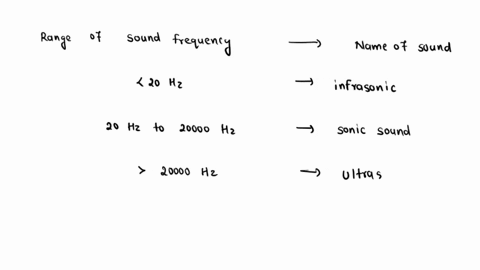 Range of sound frequency → Name of sound
< 20 Hz → infrasonic
20 Hz to 20000 Hz → sonic sound
> 20000 Hz → ultras